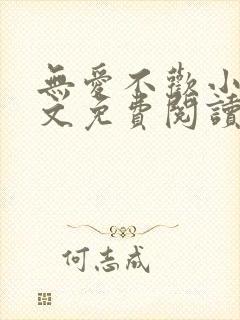 無愛不歡小
文免費閱讀
何志成